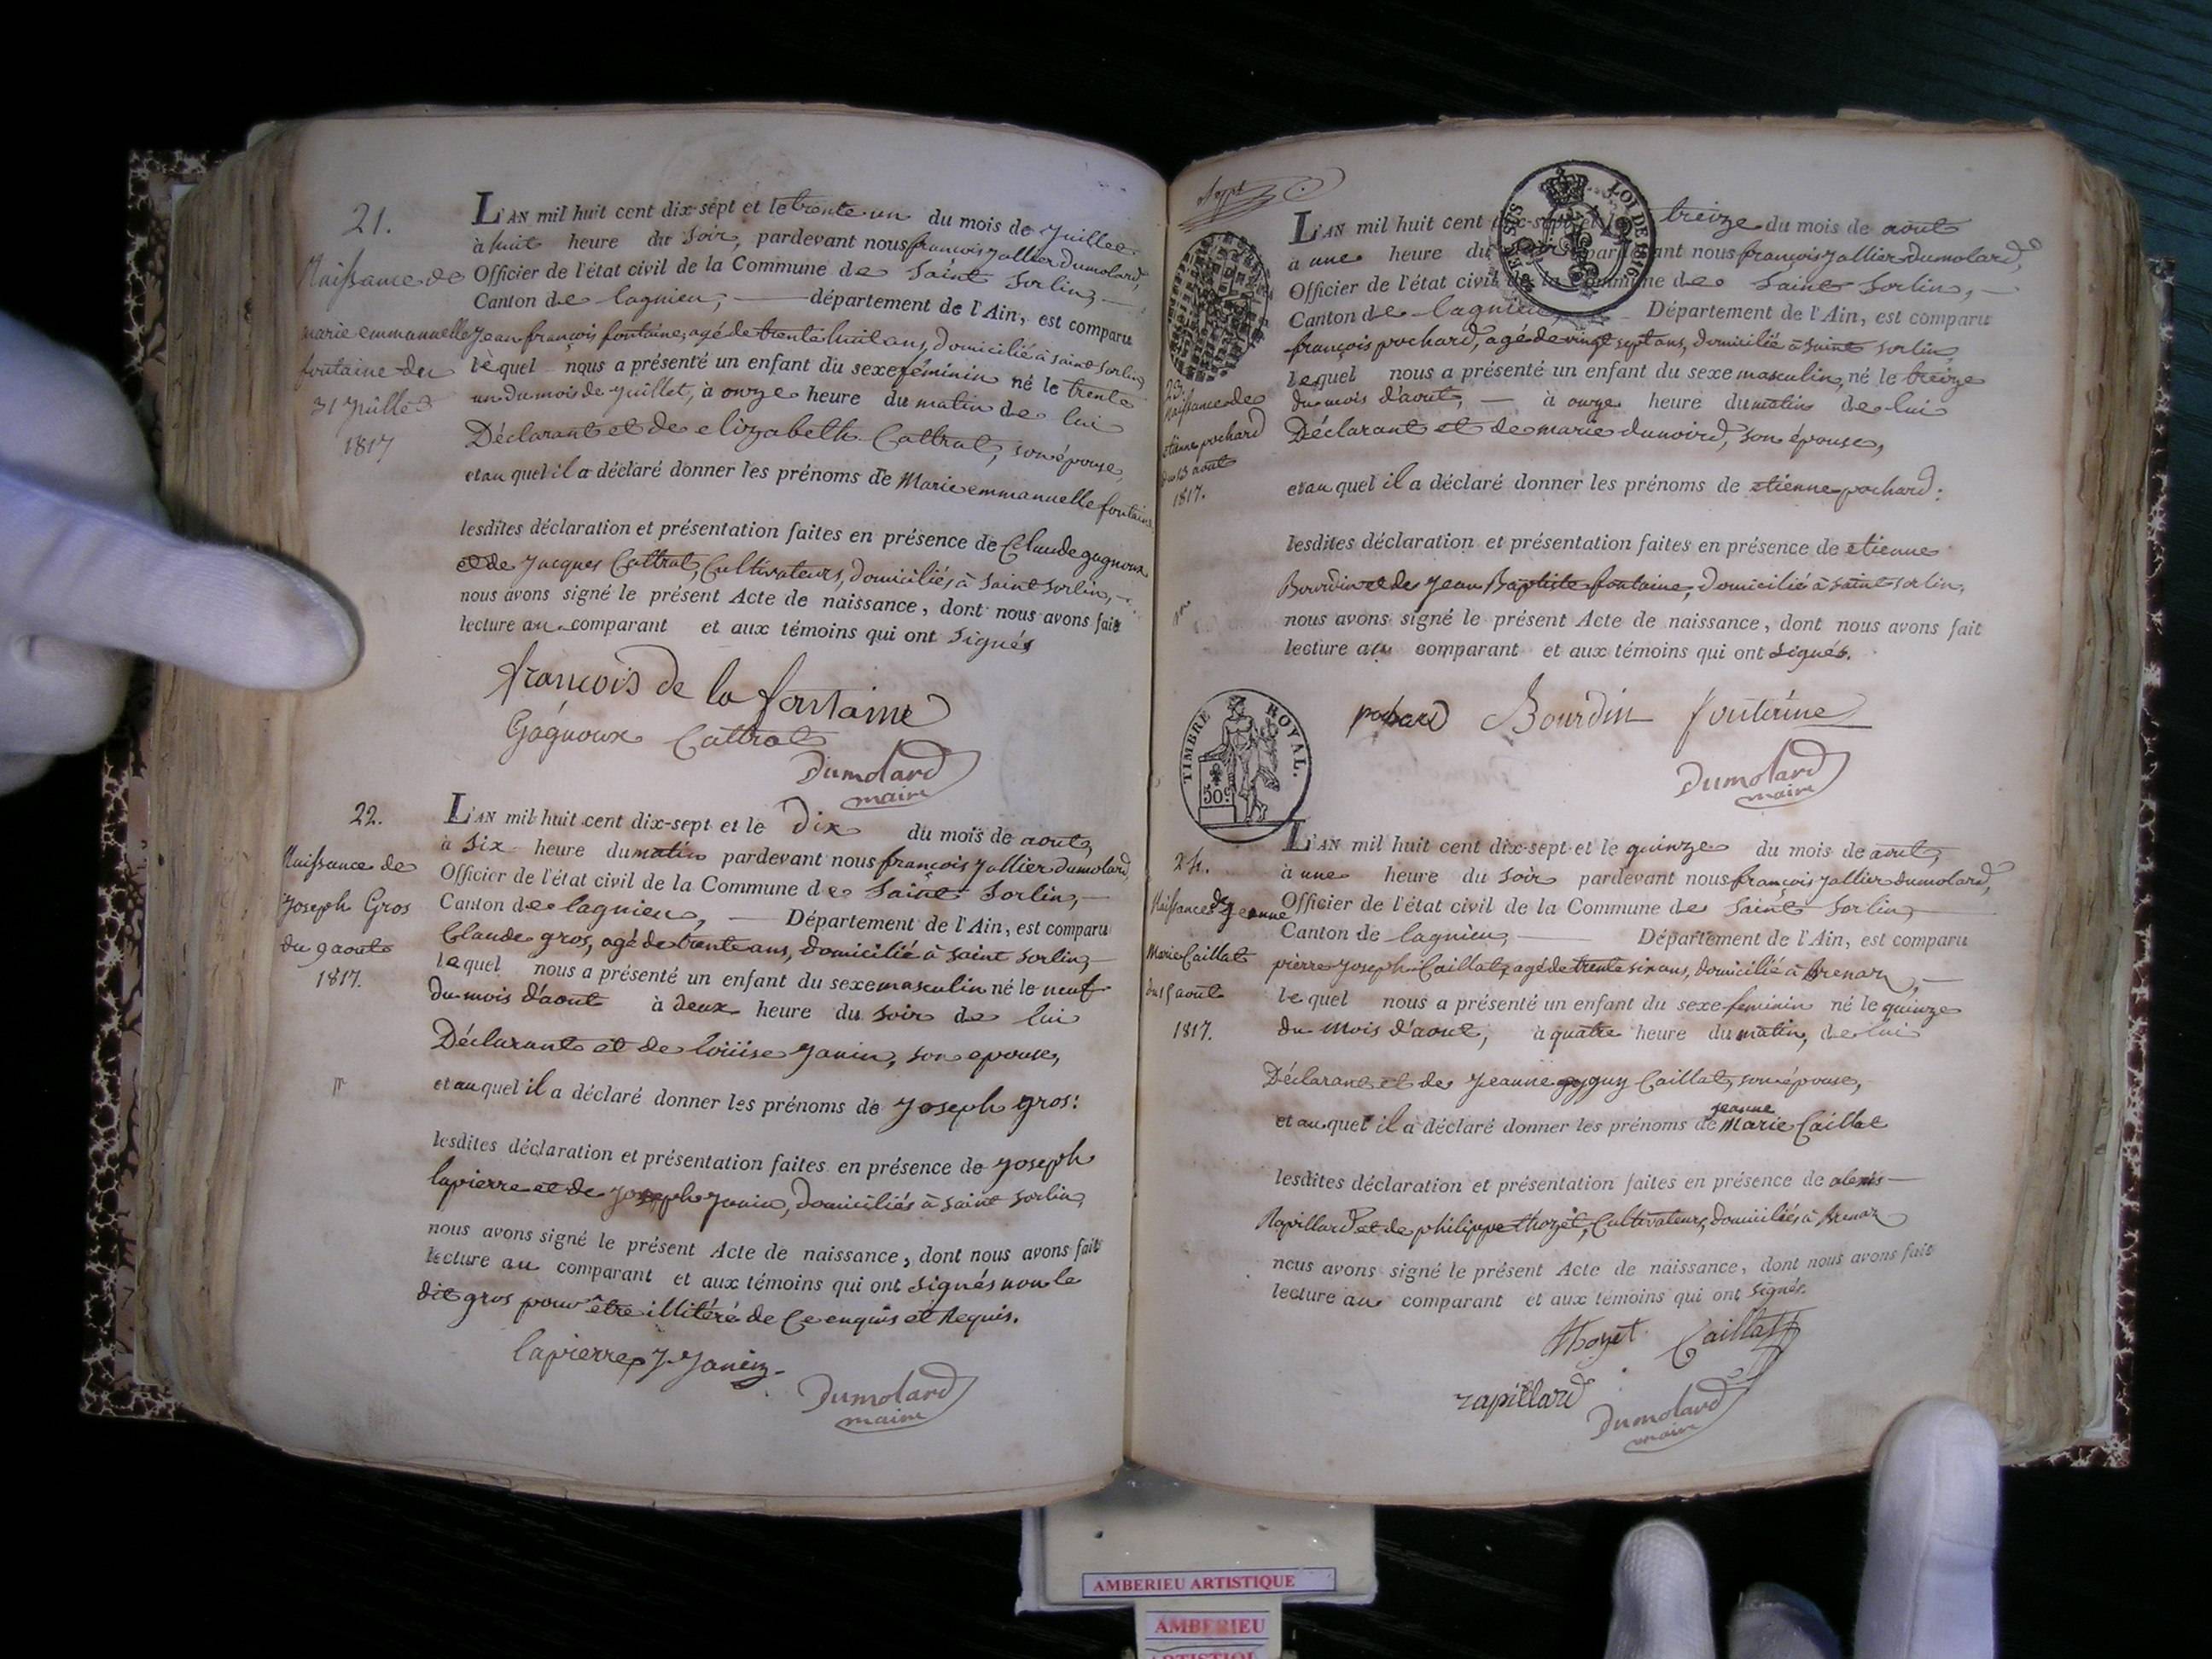 21.
Naissance de
marie emmanuelle
fontaine du
31 Juillet
1817
L'AN mil huit cent dix-sept et le trente un du mois de Juillet
à huit heure du Soir, pardevant nous françois Jallier Dumolard,
Officier de l'état civil de la Commune de Saint Sorlin,
Canton de lagnieu, département de l'Ain, est comparu
Jean françois fontaine, agé de trente huit ans, Domicilié à saint Sorlin
lequel nous a présenté un enfant du sexe féminin né le trente
un du mois de Juillet, à onze heure du matin de lui
Déclarant et de elizabeth Cattrat, son épouse,
et au quel il a déclaré donner les prénoms de Marie emmanuelle fontaine
lesdites déclaration et présentation faites en présence de Claude gagnoux
et de Jacques Cattrat, Cultivateurs, domiciliés à Saint Sorlin,
nous avons signé le présent Acte de naissance, dont nous avons fait
lecture au comparant et aux témoins qui ont signés
françois de la fontaine
Gagnoux Cattrat
Dumolard
maire
22.
Naissance de
Joseph Gros
du 9 aout
1817.
L'AN mil huit cent dix-sept et le Dix du mois de aout,
à Six heure du matin pardevant nous françois Jallier Dumolard,
Officier de l'état civil de la Commune de Saint Sorlin,
Canton de lagnieu, Département de l'Ain, est comparu
Claude gros, agé de trente ans, Domicilié à saint Sorlin,
lequel nous a présenté un enfant du sexe masculin né le neuf
du mois d'aout à deux heure du Soir de lui
Déclarant et de loüise Janin, son epouse,
et au quel il a déclaré donner les prénoms de Joseph gros:
lesdites déclaration et présentation faites en présence de Joseph
lapierre et de Joseph Janin, domiciliés à saint Sorlin,
nous avons signé le présent Acte de naissance, dont nous avons fait
lecture au comparant et aux témoins qui ont signés non le
dit gros pour être illitéré de Ce enquis et Requis.
lapierre J Janin
Dumolard
maire
Sept
LOI DE 1816.
23.
Naissance de
etienne pochard
du 13 aout
1817.
L'AN mil huit cent dix-sept et le treize du mois de aout
à une heure du pardevant nous françois Jallier Dumolard,
Officier de l'état civil de la Commune de Saint Sorlin,
Canton de lagnieu, Département de l'Ain, est comparu
françois pochard, agé de vingt sept ans, domicilié à saint Sorlin,
lequel nous a présenté un enfant du sexe masculin, né le treize
du mois d'aout, à onze heure du matin de lui
Déclarant et de marie dunoird, son épouse,
et au quel il a déclaré donner les prénoms de etienne pochard:
lesdites déclaration et présentation faites en présence de etienne
Bourdin et de Jean Baptiste fontaine, domicilié à saint Sorlin,
nous avons signé le présent Acte de naissance, dont nous avons fait
lecture au comparant et aux témoins qui ont signés.
pochard Bourdin fontaine
Dumolard
maire
TIMBRE ROYAL.
50c
24.
Naissance de Jeanne
Marie Caillat
du 15 aout
1817.
L'AN mil huit cent dix-sept et le quinze du mois de aout,
à une heure du Soir pardevant nous françois Jallier Dumolard,
Officier de l'état civil de la Commune de Saint Sorlin,
Canton de lagnieu, Département de l'Ain, est comparu
pierre Joseph Caillat, agé de trente six ans, domicilié à Brenaz,
lequel nous a présenté un enfant du sexe feminin né le quinze
du mois d'aout, à quatre heure du matin, de lui
Déclarant et de Jeanne Caillat, son épouse,
et au quel il a déclaré donner les prénoms de Jeanne Marie Caillat
lesdites déclaration et présentation faites en présence de alexis
Rapillard et de philippe thozet, Cultivateurs, domiciliés à Brenaz
nous avons signé le présent Acte de naissance, dont nous avons fait
lecture au comparant et aux témoins qui ont signés.
thozet Caillat
rapillard
Dumolard
maire
AMBERIEU ARTISTIQUE
AMBERIEU
ARTISTIQUE